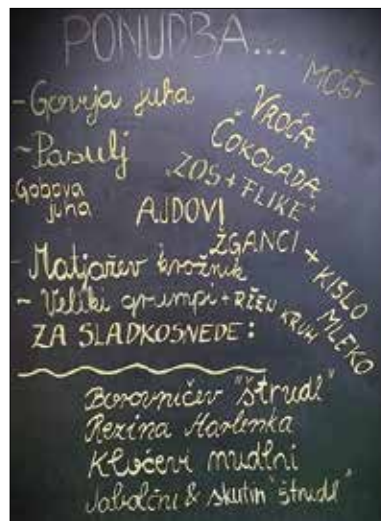 PONUDBA...
MOŠT
- Goveja juha
VROČA
ČOKOLADA
- Pasulj
"ZOS + FLIKE"
- Gobova
juha
AJDOVI
ŽGANCI + KISLO
MLEKO
- Matjažev krožnik
- Veliki grumpi + RŽEN KRUH
ZA SLADKOSNEDE:
Borovničev "štrudl"
Rezina Marlenka
Kločevi nudlni
Jabolčni & skutin "štrudl"